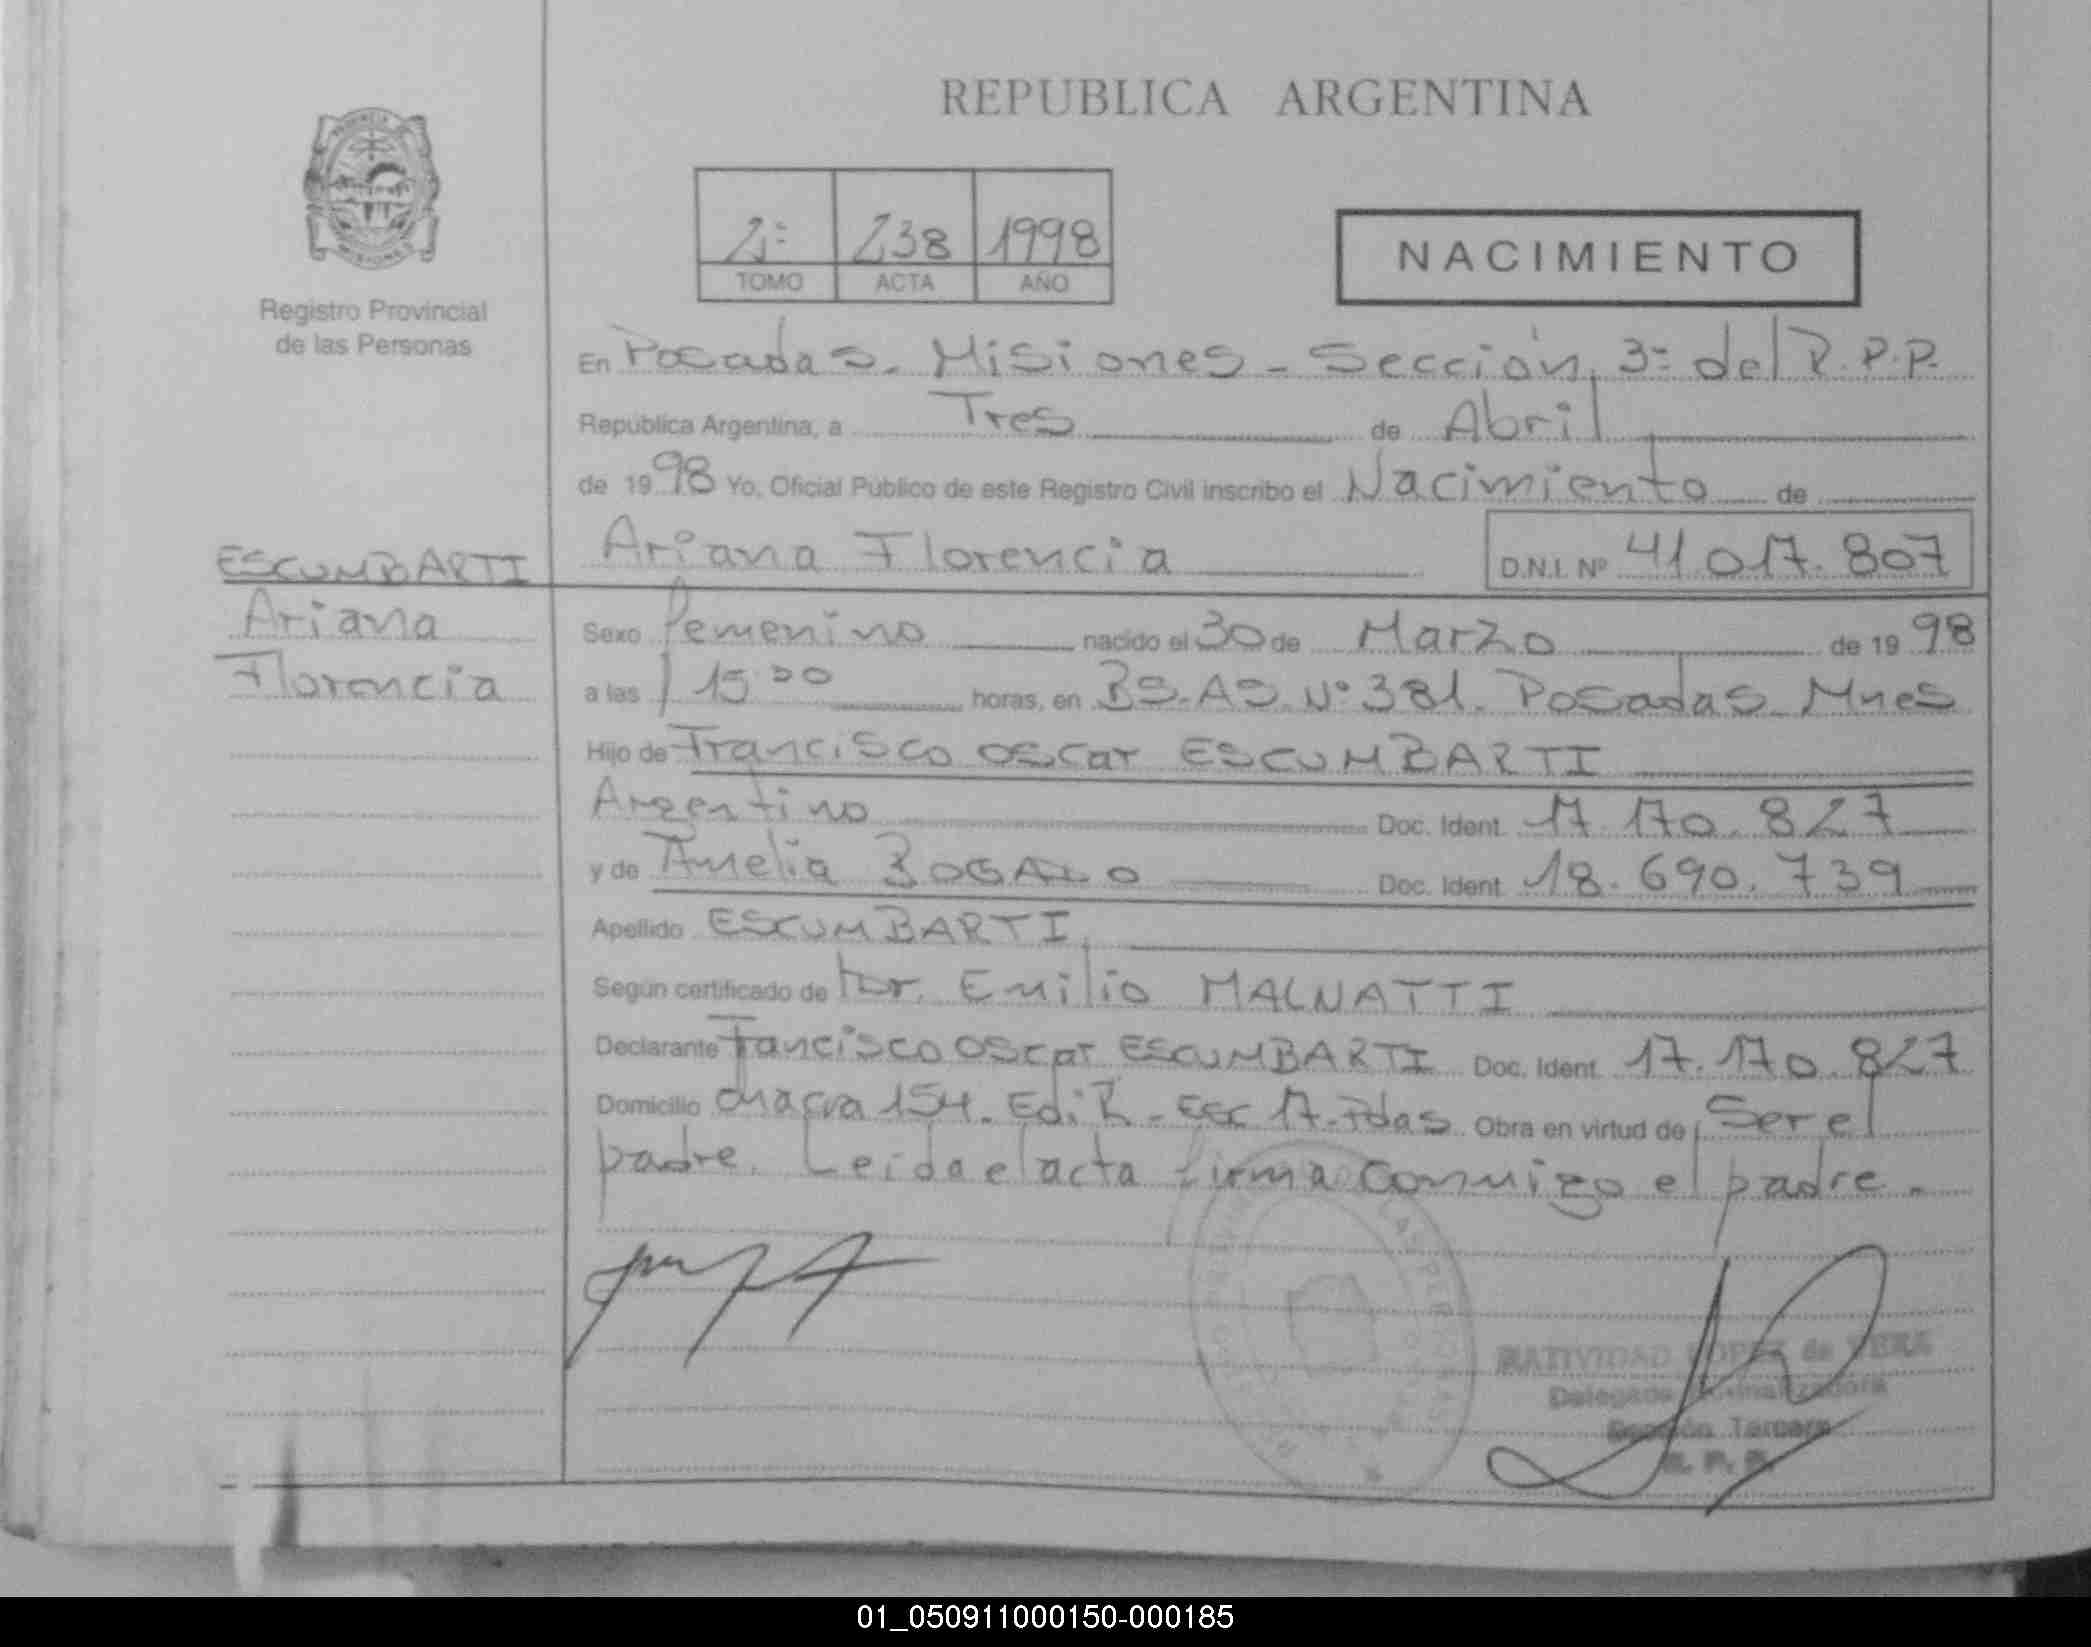 REPUBLICA ARGENTINA
2º 238 1998
TOMO ACTA AÑO
NACIMIENTO
Registro Provincial
de las Personas
En Posadas. Misiones - Sección 3º del R.P.P.
República Argentina, a Tres de Abril
de 1998 Yo, Oficial Público de este Registro Civil inscribo el Nacimiento de
Ariana Florencia D.N.I. Nº 41.017.807
ESCUMBARTI
Ariana
Florencia
Sexo Femenino nacido el 30 de Marzo de 1998
a las horas, en BS.AS. Nº 381. Posadas Mnes
Hijo de Francisco Oscar ESCUMBARTI
Argentino Doc. Ident. 17.170.827
y de Amelia BOGADO Doc. Ident. 18.690.739
Apellido ESCUMBARTI
Según certificado de Dr. Emilio MALNATTI
Declarante Fancisco Oscar ESCUMBARTI Doc. Ident. 17.170.827
Domicilio chacra 154. Edi. - 17. Pdas Obra en virtud de Ser el
padre. Leida el acta firma conmigo el padre.
NATIVIDAD LOPEZ de VERA
Sección Tercera
R. P. P.
01_050911000150-000185